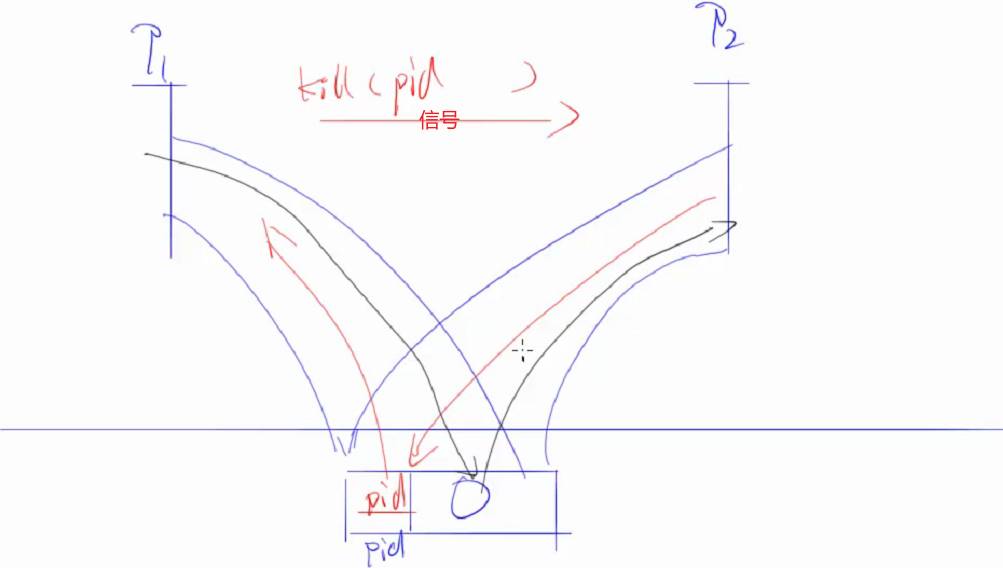 P1
P2
kill(pid )
信号
pid
pid